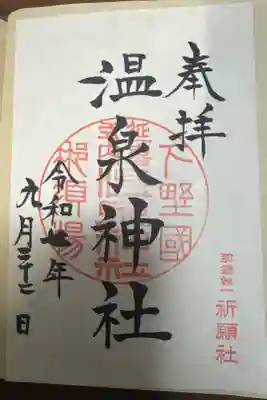 奉拝
下野國
那須與一
祈願社
温泉神社
那須湯
令和七年
九月二十二日